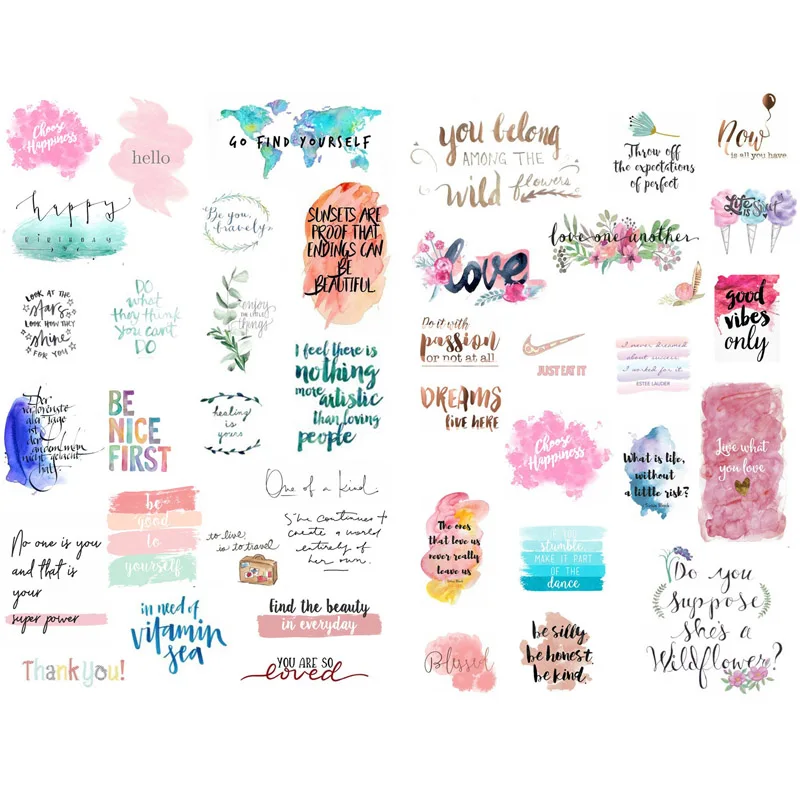 Choose
Happiness
hello
GO FIND YOURSELF
happy
BIRTHDAY
Be you,
bravely
SUNSETS ARE
PROOF THAT
ENDINGS CAN
BE
BEAUTIFUL
LOOK AT THE
stars
LOOK HOW THEY
shine
FOR YOU
DO
what
they think
you can't
DO
enjoy
THE LITTLE
things
I feel there is
nothing
more artistic
than loving
people
Der
verlorenste
aller Tage
ist
der
an dem man
nicht gelacht
hat
BE
NICE
FIRST
healing
is
yours
be
good
to
yourself
One of a kind.
She continues to
create a world
entirely of
her own.
to live
is to travel
No one is you
and that is
your
super power
in need of
vitamin
sea
find the beauty
in everyday
Thank you!
YOU ARE SO
loved
you belong
AMONG THE
wild flowers
Throw off
the expectations
of perfect
Now
is all you have
Life is
love
love one another
good
vibes
only
Do it with
passion
or not at all
JUST EAT IT
I never dreamed
about success.
I worked for it.
ESTEE LAUDER
DREAMS
live HERE
Choose
Happiness
What is life,
without
a little risk?
Live what
you love
The ones
that love us
never really
leave us
stumble
MAKE IT PART
OF THE
dance
Do you
suppose
she's a
Wildflower?
Blessed
be silly.
be honest.
be kind.